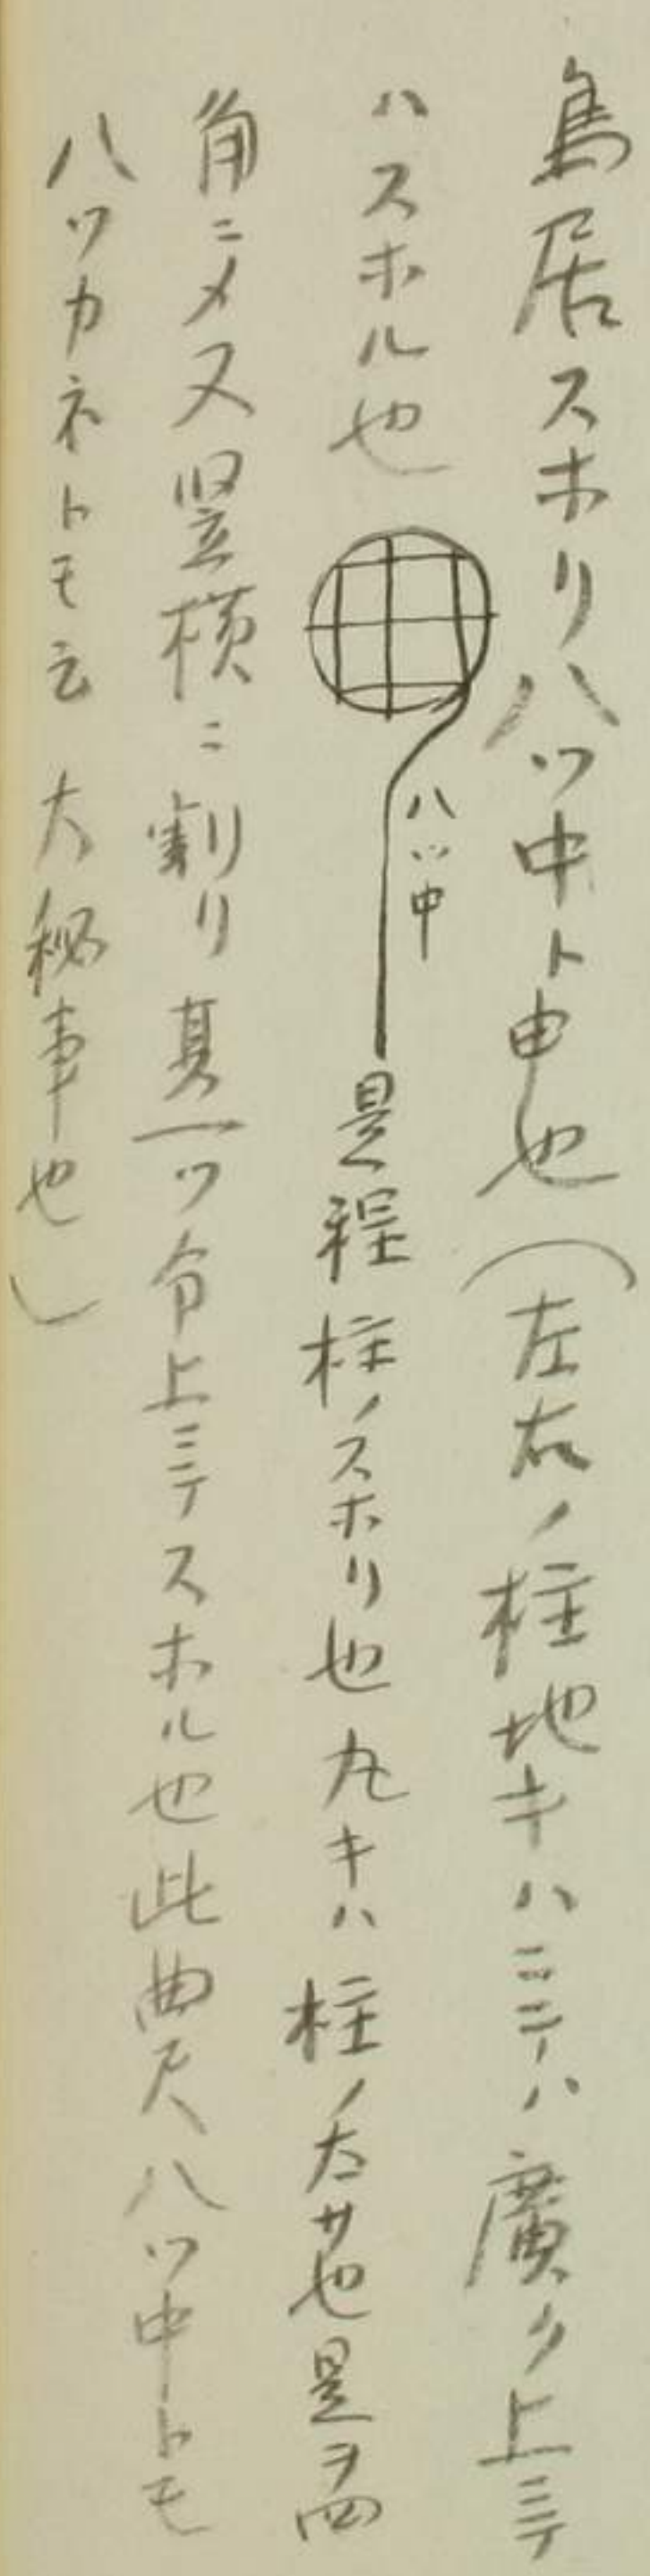 鳥居スホリ八ツ中ト申也(左右ノ柱地キハニテハ廣ク上ミテ
ハスホル也
八ツ中
是程柱ノスホリ也丸キハ柱ノ太サ也是ヲ四
角ニメ又竪横ニ割リ其一ツ令上ミテスホル也此曲尺八ツ中トモ
八ツカネトモ云大秘事也)